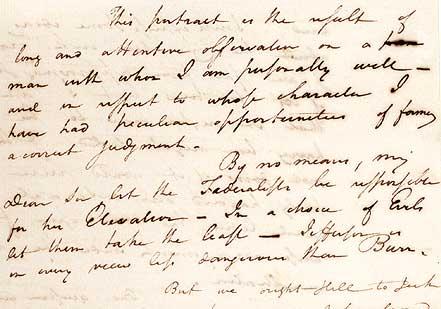 This portrait is the result of
long and attentive observation on a
man with whom I am personally well –
and in respect to whose character I
have had peculiar opportunities of forming
a correct judgment.
By no means, my
Dear Sir let the Fœderalists be responsible
for his Elevation – In a choice of Evils
let them take the least – Jefferson is
in every view less dangerous than Burr.
But we ought still to seek